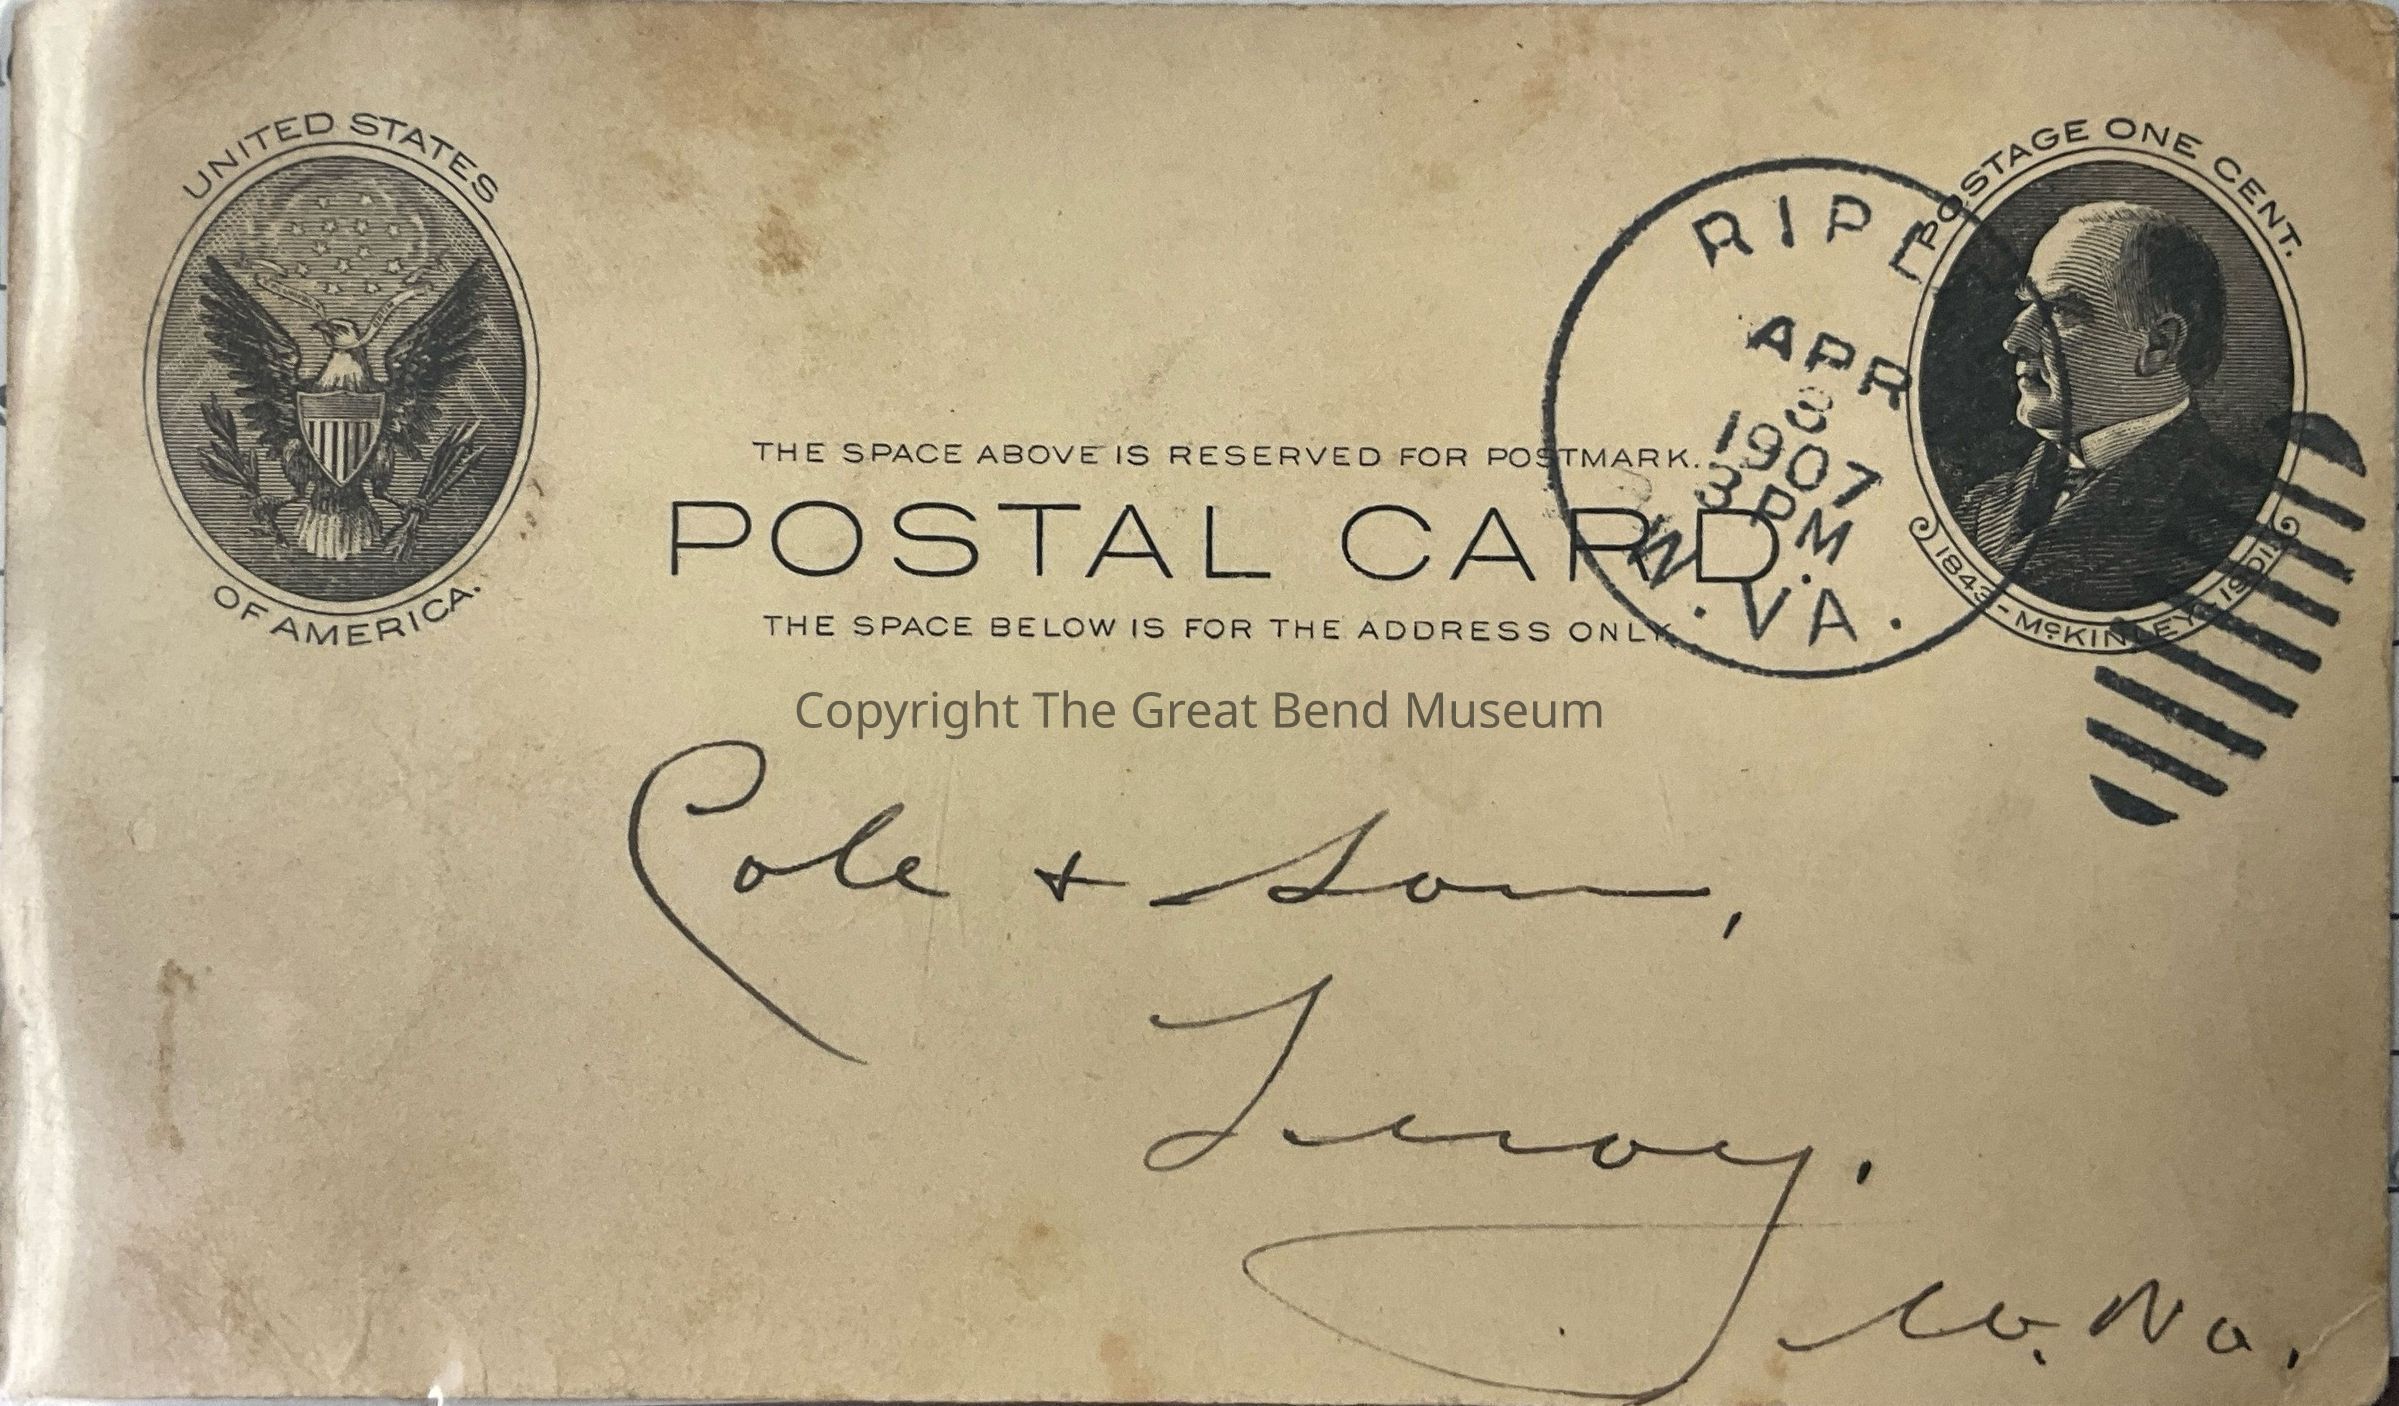 UNITED STATES
OF AMERICA.
POSTAGE ONE CENT.
1843 - McKINLEY - 1901
RIPL
APR
8
1907
3 PM
W. VA.
THE SPACE ABOVE IS RESERVED FOR POSTMARK.
POSTAL CARD.
THE SPACE BELOW IS FOR THE ADDRESS ONLY.
Copyright The Great Bend Museum
Cole + Son,
Leroy.
W. Va.